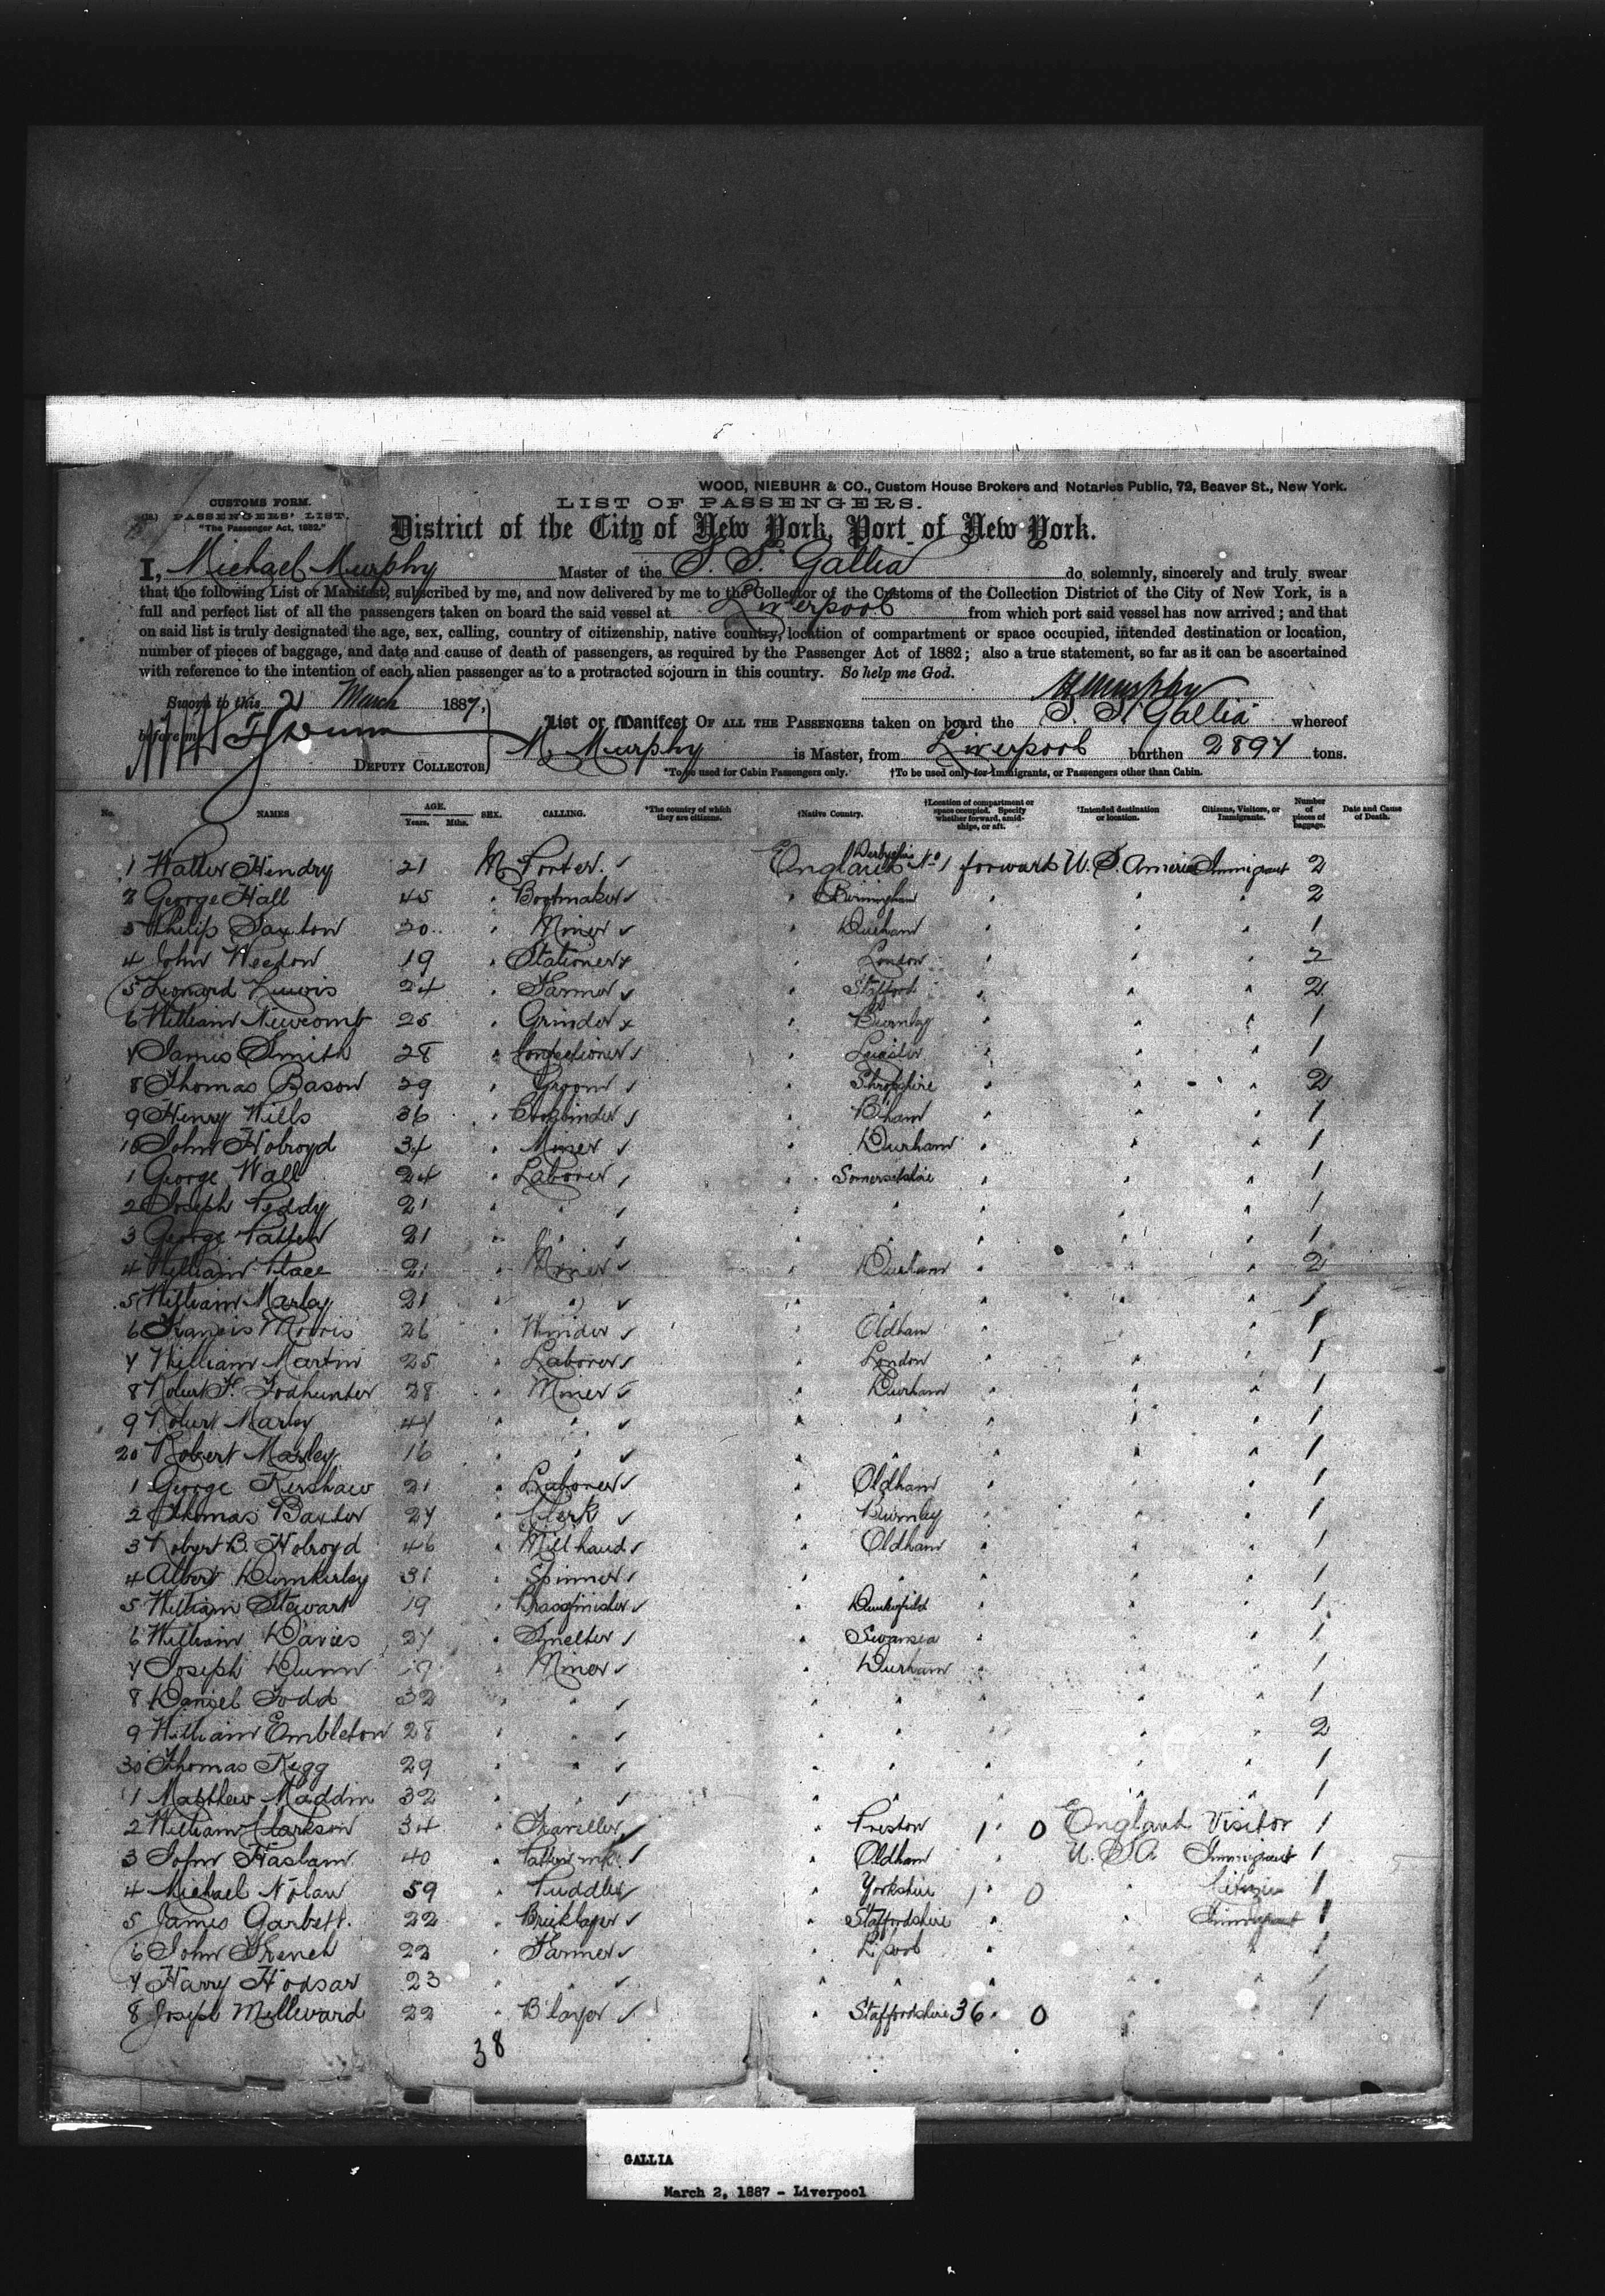 WOOD, NIEBUHR & CO., Custom House Brokers and Notaries Public, 72, Beaver St., New York.
CUSTOMS FORM.
LIST OF PASSENGERS.
PASSENGERS' LIST.
"The Passenger Act, 1882."
District of the City of New York, Port of New York.
I, Michael Murphy Master of the S. S. Gallia do solemnly, sincerely and truly swear
that the following List or Manifest, subscribed by me, and now delivered by me to the Collector of the Customs of the Collection District of the City of New York, is a
full and perfect list of all the passengers taken on board the said vessel at Liverpool from which port said vessel has now arrived; and that
on said list is truly designated the age, sex, calling, country of citizenship, native country, location of compartment or space occupied, intended destination or location,
number of pieces of baggage, and date and cause of death of passengers, as required by the Passenger Act of 1882; also a true statement, so far as it can be ascertained
with reference to the intention of each alien passenger as to a protracted sojourn in this country. So help me God.
M Murphy
Sworn to this 2 March 1887,
List or Manifest OF ALL THE PASSENGERS taken on board the S. S. Gallia whereof
before me
M. Murphy is Master, from Liverpool burthen 2897 tons.
DEPUTY COLLECTOR
*To be used for Cabin Passengers only. †To be used only for Immigrants, or Passengers other than Cabin.
No. NAMES AGE. Years. Mths. SEX. CALLING. *The country of which they are citizens. †Native Country. †Location of compartment or space occupied. Specify whether forward, amidships, or aft. †Intended destination or location. Citizens, Visitors, or Immigrants. Number of pieces of baggage. Date and Cause of Death.
1 Walter Hendry 21 M Porter England Derbyshire No 1 forward U. S. America Immigrant 2
2 George Hall 45 " Bootmaker " Birmingham " " " 2
3 Philip Saxton 20 " Miner " Durham " " " 1
4 John Weedon 19 " Stationer " London " " " 2
5 Leonard Lewis 24 " Farmer " Stafford " " " 2
6 William Newcomb 25 " Grinder " Burnley " " " 1
7 James Smith 28 " Confectioner " Leicester " " " 1
8 Thomas Bason 29 " Groom " Shropshire " " " 2
9 Henry Wills 36 " Bookbinder " B'ham " " " 1
10 John Holroyd 34 " Miner " Durham " " " 1
1 George Wall 24 " Laborer " Somersetshire " " " 1
2 Joseph Peddy 21 " " " " " " 1
3 George Patten 21 " " " " " " 1
4 William Place 21 " Miner " Durham " " " 2
5 William Marley 21 " " " " " " " 1
6 Francis Morris 26 " Winder " Oldham " " " 1
7 William Martin 25 " Laborer " London " " " 1
8 Robert H. Todhunter 28 " Miner " Durham " " " 1
9 Robert Marley 44 " " " " " " " 1
20 Robert Marley 16 " " " " " " " 1
1 George Kershaw 21 " Laborer " Oldham " " " 1
2 Thomas Baxter 27 " Clerk " Burnley " " " 1
3 Robert B. Holroyd 46 " Millhand " Oldham " " " 1
4 Albert Dunkerley 31 " Spinner " " " " " 1
5 William Stewart 19 " Brassfinisher " Dukinfield " " " 1
6 William Davies 27 " Smelter " Swansea " " " 1
7 Joseph Dunn 19 " Miner " Durham " " " 1
8 Daniel Todd 32 " " " " " " " 1
9 William Embleton 28 " " " " " " " 2
30 Thomas Kegg 29 " " " " " " " 1
1 Matthew Maddin 32 " " " " " " " 1
2 William Clarkson 34 " Traveller " Preston 1 " 0 England Visitor 1
3 John Haslam 40 " Pattern mkr " Oldham " " U. S. A. Immigrant 1
4 Michael Nolan 59 " Puddler " Yorkshire 1 " 0 " Citizen 1
5 James Garbett. 22 " Bricklayer " Staffordshire " " Immigrant 1
6 John French 22 " Farmer " L'pool " " " 1
7 Harry Hodsar 23 " " " " " " " 1
8 Joseph Millward 22 " B'layer " Staffordshire 36 " 0 " " 1
38
GALLIA
March 2, 1887 - Liverpool